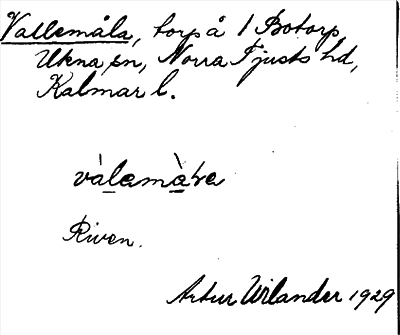 Vallemåla, torp å 1 Botorp,
Ukna sn, Norra Tjusts hd,
Kalmar l.
Riven.
Artur Wilander 1929